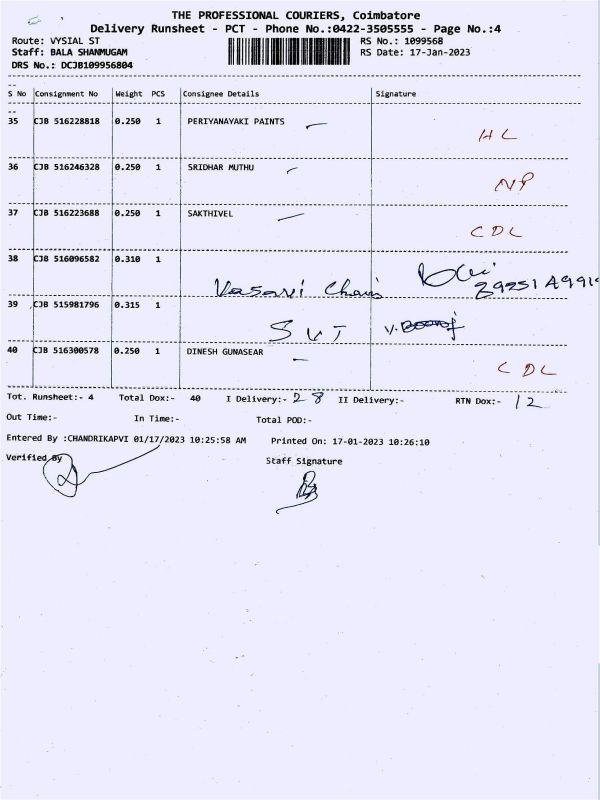 THE PROFESSIONAL COURIERS, Coimbatore
Delivery Runsheet - PCT - Phone No.:0422-3505555 - Page No.:4
Route: VYSIAL ST
RS No.: 1099568
Staff: BALA SHANMUGAM
RS Date: 17-Jan-2023
DRS No.: DCJB109956804
S No Consignment No Weight PCS Consignee Details Signature
35 CJB 516228818 0.250 1 PERIYANAYAKI PAINTS
HL
36 CJB 516246328 0.250 1 SRIDHAR MUTHU
NP
37 CJB 516223688 0.250 1 SAKTHIVEL
CDL
38 CJB 516096582 0.310 1
Vasavi Chais
39 CJB 515981796 0.315 1
SVT
40 CJB 516300578 0.250 1 DINESH GUNASEAR
CDL
Tot. Runsheet:- 4 Total Dox:- 40 I Delivery:- 28 II Delivery:- RTN Dox:- 12
Out Time:- In Time:- Total POD:-
Entered By :CHANDRIKAPVI 01/17/2023 10:25:58 AM Printed On: 17-01-2023 10:26:10
Verified By Staff Signature